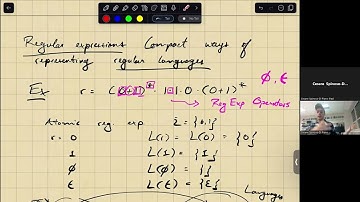 Regular expressions Compact ways of
representing regular languages
Ex r = (0+1)* · 1 · 0 · (0+1)* ϕ, ε
Reg Exp Operators
Atomic reg. exp. Σ = {0,1}
r = 0 L(r) = L(0) = {0}
1 L(1) = {1}
ϕ L(ϕ) = { }
ε L(ε) = {ε}
Languages